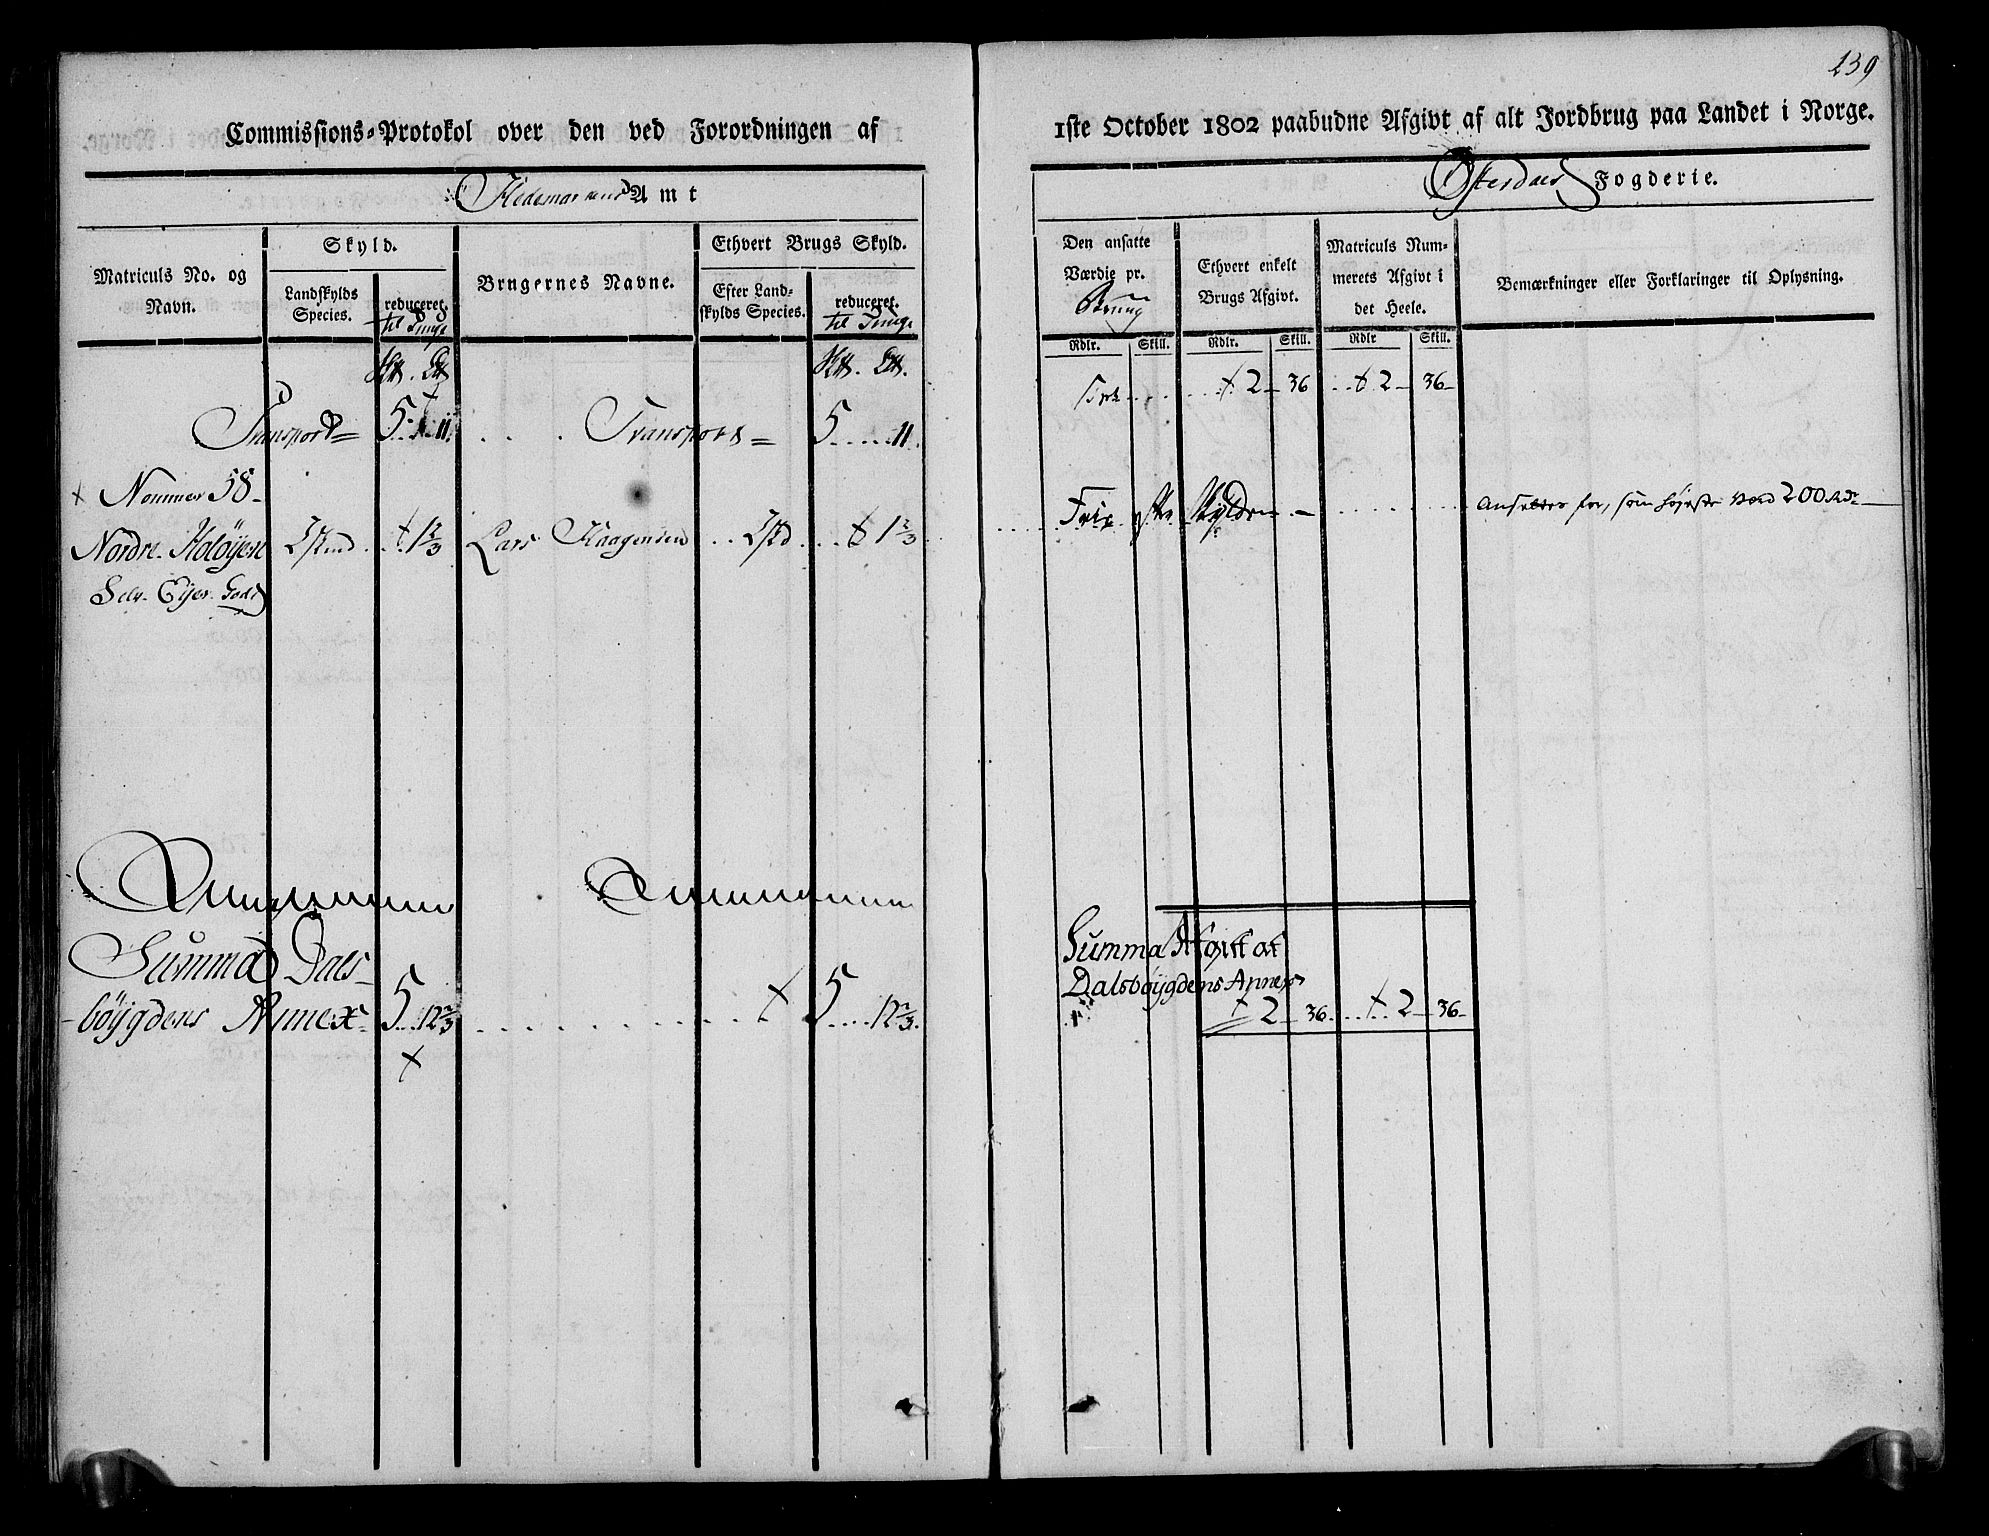 239
Commissions=Protokol over den ved Forordningen af
1ste October 1802 paabudne Afgivt af alt Jordbrug paa Landet i Norge.
Hedemarkens Amt
Østerdals Fogderie.
Matriculs No. og
Navn.
Skyld.
Landskylds
Species.
reduceret.
til Tunge
Brugernes Navne.
Ethvert Brugs Skyld.
Efter Land-
skylds Species.
reduceret.
til Tunge
Den ansatte
Værdie pr.
Brug
Ethvert enkelt
Brugs Afgivt.
Matriculs Num-
merets Afgivt i
det Heele.
Bemærkninger eller Forklaringer til Oplysning.
Rdlr. Skill. Rdlr. Skill. Rdlr Skill.
Transport= 5....11. . . . Transport= 5.....11.
2 - 36 2 - 36-
Nommer 58-
Nordre Holøyen 2 Skind 1 2/3 Lars Haagensen 2 skd 1 2/3
Selv Eyer Gods
Frie Skylden - ansættes for, som højeste værd 200 Rdr
Summa Dals-
bøygdens Annex 5...12 2/3 5....12 2/3.
Summa Afgivt af
Dalsbøygdens Annex
2 - 36 2 - 36-